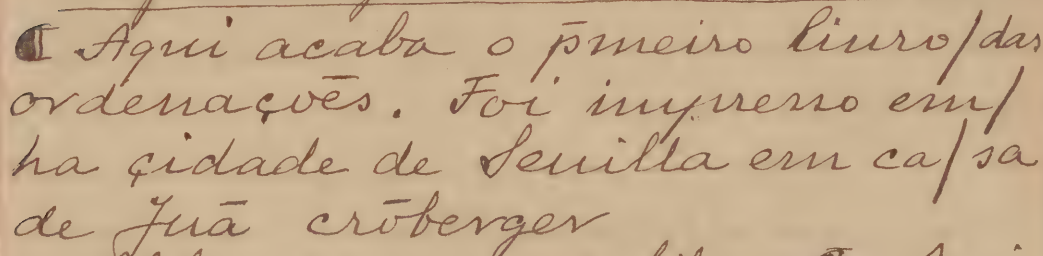 ¶ Aqui acaba o p̄meiro liuro/das
ordenaçoẽs. Foi impresso em/
ha çidade de Seuilla em ca/sa
de Juã crõberger